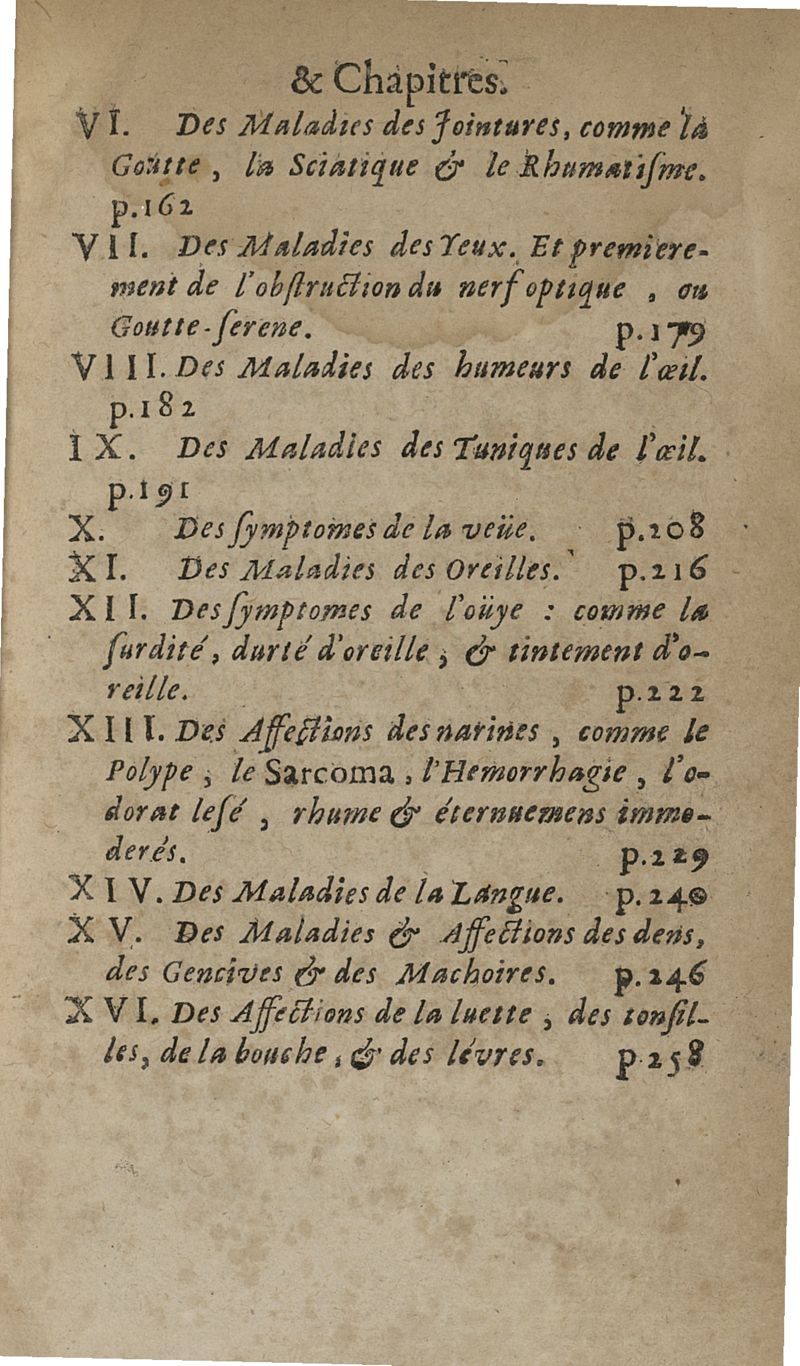 & Chapitres.
VI. Des Maladies des Jointures, comme la
Goûtte, la Sciatique & le Rhumatiſme.
p.162
VII. Des Maladies des Yeux. Et premiere-
ment de l'obſtruction du nerf optique, ou
Goutte-ſerene. p.179
VIII. Des Maladies des humeurs de l'œil.
p.182
IX. Des Maladies des Tuniques de l'œil.
p.191
X. Des ſymptomes de la veüe. p.208
XI. Des Maladies des Oreilles. p.216
XII. Des ſymptomes de l'oüye : comme la
ſurdité, durté d'oreille, & tintement d'o-
reille. p.222
XIII. Des Affections des narines, comme le
Polype, le Sarcoma, l'Hemorrhagie, l'o-
dorat leſé, rhume & éternuemens immo-
derés. p.229
XIV. Des Maladies de la Langue. p.240
XV. Des Maladies & Affections des dens,
des Gencives & des Machoires. p.246
XVI. Des Affections de la luette, des tonſil-
les, de la bouche, & des lévres. p.258